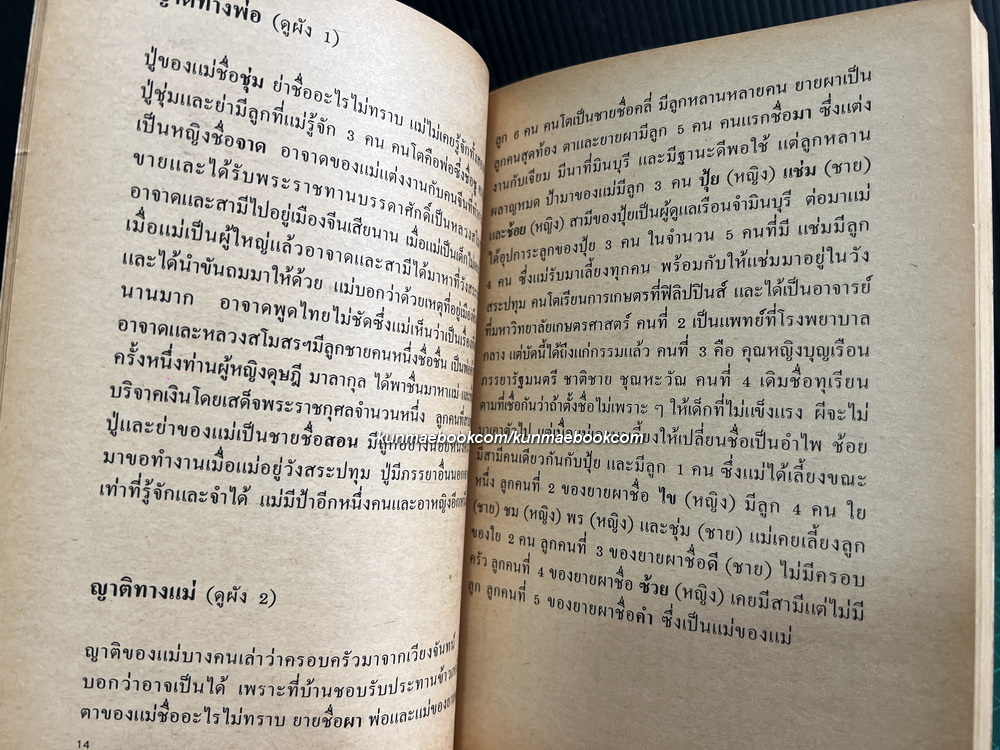 ญาติทางพ่อ (ดูผัง 1)
ปู่ของแม่ชื่อชุ่ม ย่าชื่ออะไรไม่ทราบ แม่ไม่เคยรู้จัก
ปู่ชุ่มและย่ามีลูกที่แม่รู้จัก 3 คน คนโตคือพ่อซึ่งชื่อชู
เป็นหญิงชื่อจาด อาจาดของแม่แต่งงานกับคนจีนที่
ขายและได้รับพระราชทานบรรดาศักดิ์เป็นหลวง
อาจาดและสามีไปอยู่เมืองจีนเสียนาน เมื่อแม่เป็นเด็ก
เมื่อแม่เป็นผู้ใหญ่แล้วอาจาดและสามีได้มาหาที่วัง
และได้นำขันถมมาให้ด้วย แม่บอกว่าด้วยเหตุที่อยู่เมือง
นานมาก อาจาดพูดไทยไม่ชัดซึ่งแม่เห็นว่าเป็นเรื่อง
อาจาดและหลวงสโมสรฯมีลูกชายคนหนึ่งชื่อชื่น
ครั้งหนึ่งท่านผู้หญิงดุษฎี มาลากุล ได้พาชื่นมาหาแม่
บริจาคเงินโดยเสด็จพระราชกุศลจำนวนหนึ่ง ลูกคนที่
ปู่และย่าของแม่เป็นชายชื่อสอน มีลูกอย่างน้อย
มาขอทำงานเมื่อแม่อยู่วังสระปทุม ปู่มีภรรยาอื่น
เท่าที่รู้จักและจำได้ แม่มีป้าอีกหนึ่งคนและอาหญิง
ญาติทางแม่ (ดูผัง 2)
ญาติของแม่บางคนเล่าว่าครอบครัวมาจากเวียงจันทน์
บอกว่าอาจเป็นได้ เพราะที่บ้านชอบรับประทาน
ตาของแม่ชื่ออะไรไม่ทราบ ยายชื่อผา พ่อและแม่ของ
14
ลูก 6 คน คนโตเป็นชายชื่อคลี่ มีลูกหลานหลายคน ยายผาเป็น
ลูกคนสุดท้อง ตาและยายผามีลูก 5 คน คนแรกชื่อมา ซึ่งแต่ง
งานกับเจียม มีนาที่มีนบุรี และมีฐานะดีพอใช้ แต่ลูกหลาน
ผลาญหมด ป้ามาของแม่มีลูก 3 คน ปุ้ย (หญิง) แช่ม (ชาย)
และช้อย (หญิง) สามีของปุ้ยเป็นผู้ดูแลเรือนจำมีนบุรี ต่อมาแม่
ได้อุปการะลูกของปุ้ย 3 คน ในจำนวน 5 คนที่มี แช่มมีลูก
4 คน ซึ่งแม่รับมาเลี้ยงทุกคน พร้อมกับให้แช่มมาอยู่ในวัง
สระปทุม คนโตเรียนการเกษตรที่ฟิลิปปินส์ และได้เป็นอาจารย์
ที่มหาวิทยาลัยเกษตรศาสตร์ คนที่ 2 เป็นแพทย์ที่โรงพยาบาล
กลาง แต่บัดนี้ได้ถึงแก่กรรมแล้ว คนที่ 3 คือ คุณหญิงบุญเรือน
ภรรยารัฐมนตรี ชาติชาย ชุณหะวัณ คนที่ 4 เดิมชื่อทุเรียน
ตามที่เชื่อกันว่าถ้าตั้งชื่อไม่เพราะ ๆ ให้เด็กที่ไม่แข็งแรง ผีจะไม่
มาเอาตัวไป แต่เมื่อ เลี้ยงให้เปลี่ยนชื่อเป็นอำไพ ช้อย
kunmaebookcom/kunmaebookcom
มีสามีคนเดียวกันกับปุ้ย และมีลูก 1 คน ซึ่งแม่ได้เลี้ยงขณะ
หนึ่ง ลูกคนที่ 2 ของยายผาชื่อ ไข (หญิง) มีลูก 4 คน ใย
(ชาย) ชม (หญิง) พร (หญิง) และชุ่ม (ชาย) แม่เคยเลี้ยงลูก
ของใย 2 คน ลูกคนที่ 3 ของยายผาชื่อดี (ชาย) ไม่มีครอบ
ครัว ลูกคนที่ 4 ของยายผาชื่อ ซ้วย (หญิง) เคยมีสามีแต่ไม่มี
ลูก ลูกคนที่ 5 ของยายผาชื่อคำ ซึ่งเป็นแม่ของแม่